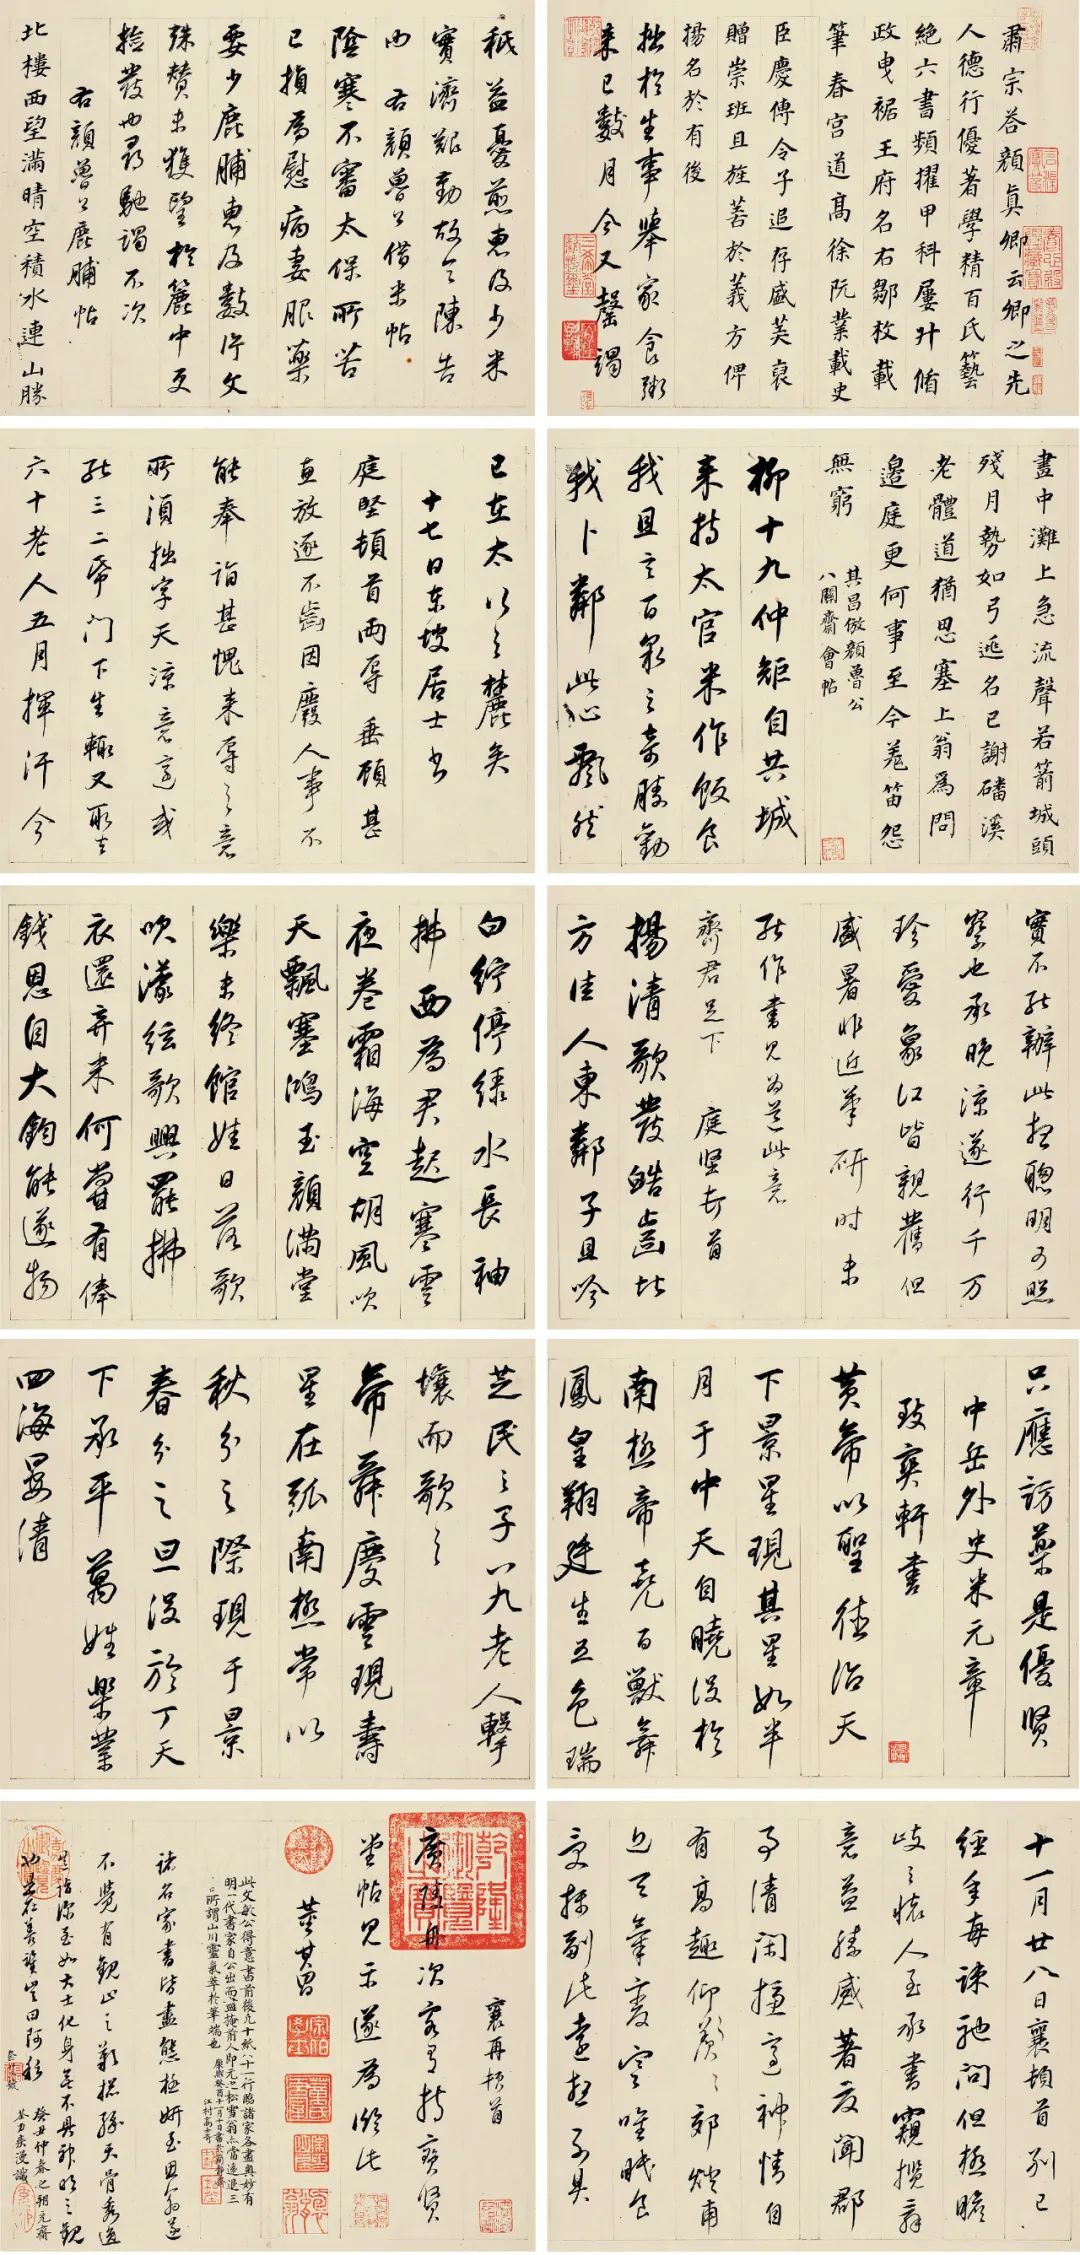 肅宗答顔真卿云卿之先
人德行優著學精百氏藝
絶六書頻擢甲科屢升循
政曳裾王府名右鄒枚載
筆春宮道高徐阮業載史
臣慶傳令子追存盛美裒
贈崇班且旌善於義方俾
揚名於有後
拙於生事舉家食粥
来已數月今又罄竭
秖益憂煎惠及少米
實濟艱勤故令陳告
也 右顔魯公借米帖
陰寒不審太保所苦
已損為慰病妻服藥
要少鹿脯惠及數斤
殊未獲望於簏中更
拾發也尋馳謁不次
右顔魯公鹿脯帖
北樓西望滿晴空積水連山勝
畫中灘上急流聲若箭城頭
殘月勢如弓逃名已謝磻溪
老體道猶思塞上翁為問
邉庭更何事至今羌笛怨
無窮
其昌倣顔魯公
八關齋會帖
柳十九仲矩自共城
来持太官米作飯食
我且言百泉之奇勝勸
我卜鄰此心飄然
已在太行之麓矣
十七日東坡居士書
庭堅頓首兩辱垂顧甚
惠放逐不齒因廢人事不
能奉詣甚愧来辱之意
所須拙字天涼意適或
能三二紙門下生輒又取去
六十老人五月揮汗今
實不能辦此想聰明可照
察也承晚涼遂行千万
珍愛象江皆親舊但
盛暑非近筆研時未
能作書見為道此意
齊君足下 庭堅頓首
揚清歌發皓齒北
方佳人東鄰子且吟
白紵停緑水長袖
拂面為君起寒雲
夜卷霜海空胡風吹
天飄塞鴻玉顔滿堂
樂未終館娃日落歌
吹濛絃歌興罷拂
衣還弃米何嘗有俸
錢恩自大鈞能遂物
只應訪藥是優賢
中岳外史米元章
致爽軒書
黄帝以聖德治天
下景星現其星如半
月于中天自曉没於
南極帝堯百獸舞
鳳皇翔廷生五色瑞
芝民之子八九老人擊
壤而歌之
帝舜慶雲現壽
星在弧南極常以
秋分之際現于景
春分之旦没於丁天
下承平萬姓樂業
四海晏清
十一月廿八日襄頓首別已
經年每辣馳問但極瞻
岐之懷人至承書窺攬辭
意益勝盛著友聞郡
事清閑擔高神情自
有高趣仰羨羨郊燧甫
近天氣寒唯眠食
襄再頓首
廣陵舟次客有持寶賢
堂帖見示遂為臨此
董其昌
此文敏公得意書前後九十紙八十一行臨諸家各盡奥妙有
明一代書家自公出而盡掩前人即元之松雪翁亦當遠退三
所謂山川靈氣萃於筆端也
江村高士奇
諸名家書皆盡態極妍至思翁遂
不覺有觀止之歎
癸丑仲春之朔元齋